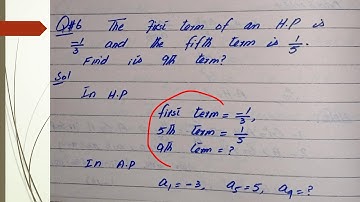 Q#6 The first term of an H.P is
-1/3 and the fifth term is 1/5.
Find its 9th term?
Sol
In H.P
first term = -1/3,
5th term = 1/5
9th term = ?
In A.P
a₁ = -3, a₅ = 5, a₉ = ?